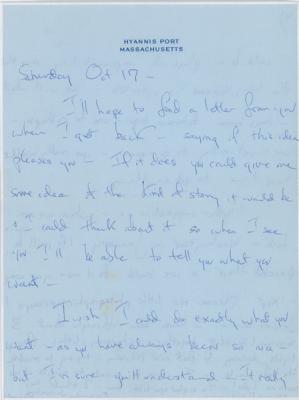 HYANNIS PORT
MASSACHUSETTS
Saturday Oct 17 -
I'll hope to find a letter from you
when I get back - saying if this idea
pleases you - If it does you could give me
some idea of the kind of story it would be
& I could think about it so when I see
you I'll be able to tell you what you
want -
I wish I could do exactly what you
want - as you have always been so nice -
but I'm sure you'll understand - It really